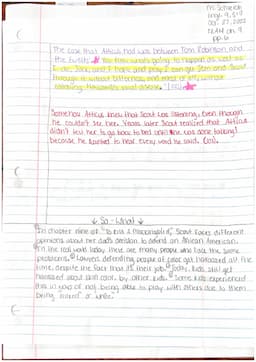 M. Schneider
Engl. 9, 5+9
Oct. 27, 2022
TKAM ch. 9
pg. 6
The case that Atticus had was between Tom Robinson and
the Ewells. "You know what's going to happen as well as
I do, Jack, and I hope and pray I can get Jem and Scout
through it without bitterness, and most of all, without
catching Maycomb's usual disease."
Somehow Atticus knew that Scout was listening, even though
he couldn't see her. Years later Scout realized that Atticus
didn't tell her to go back to bed until he was done talking
because he wanted to hear every word he said.
So-What
In chapter nine of "To Kill a Mockingbird," Scout faces different
opinions about her dad's decision to defend an African American.
In the real world today there are many people who face the same
problems. Lawyers defending people of color get harassed all the
time, despite the fact that it's their job. Today, kids still get
harassed about skin color by other kids. Some kids experienced
this in way of not being able to play with others due to them
being "mixed" or "white."